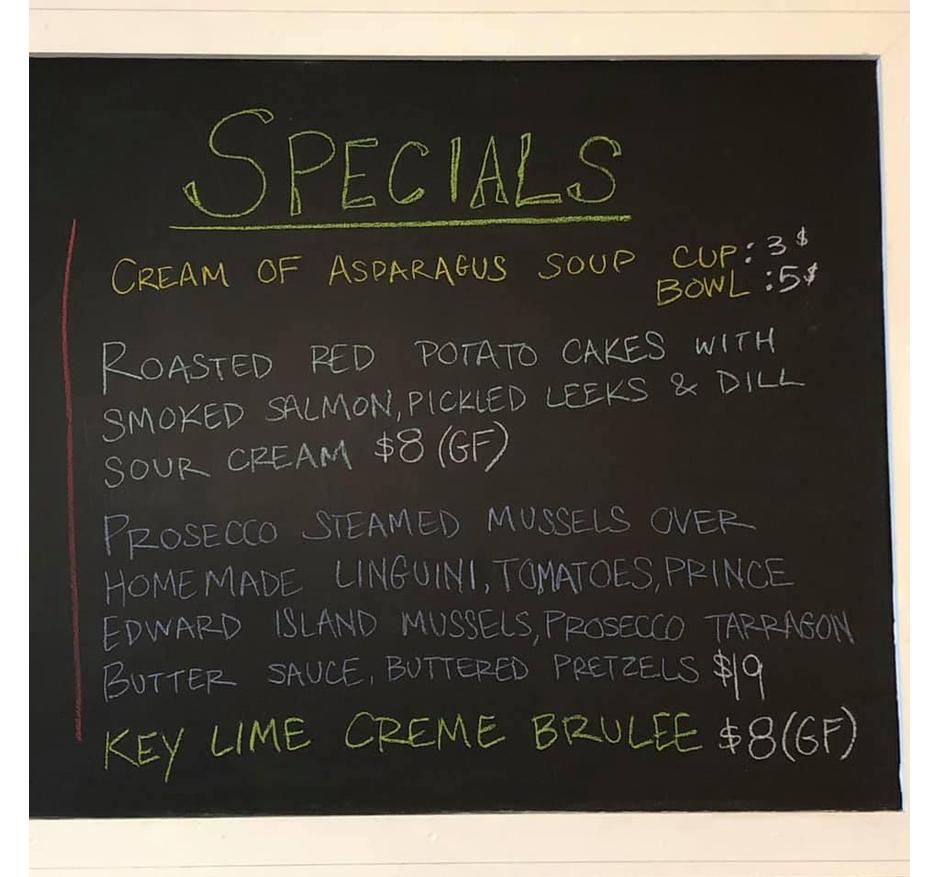 SPECIALS
CREAM OF ASPARAGUS SOUP CUP: 3$
BOWL: 5$
ROASTED RED POTATO CAKES WITH
SMOKED SALMON, PICKLED LEEKS & DILL
SOUR CREAM $8 (GF)
PROSECCO STEAMED MUSSELS OVER
HOMEMADE LINGUINI, TOMATOES, PRINCE
EDWARD ISLAND MUSSELS, PROSECCO TARRAGON
BUTTER SAUCE, BUTTERED PRETZELS $19
KEY LIME CREME BRULEE $8 (GF)